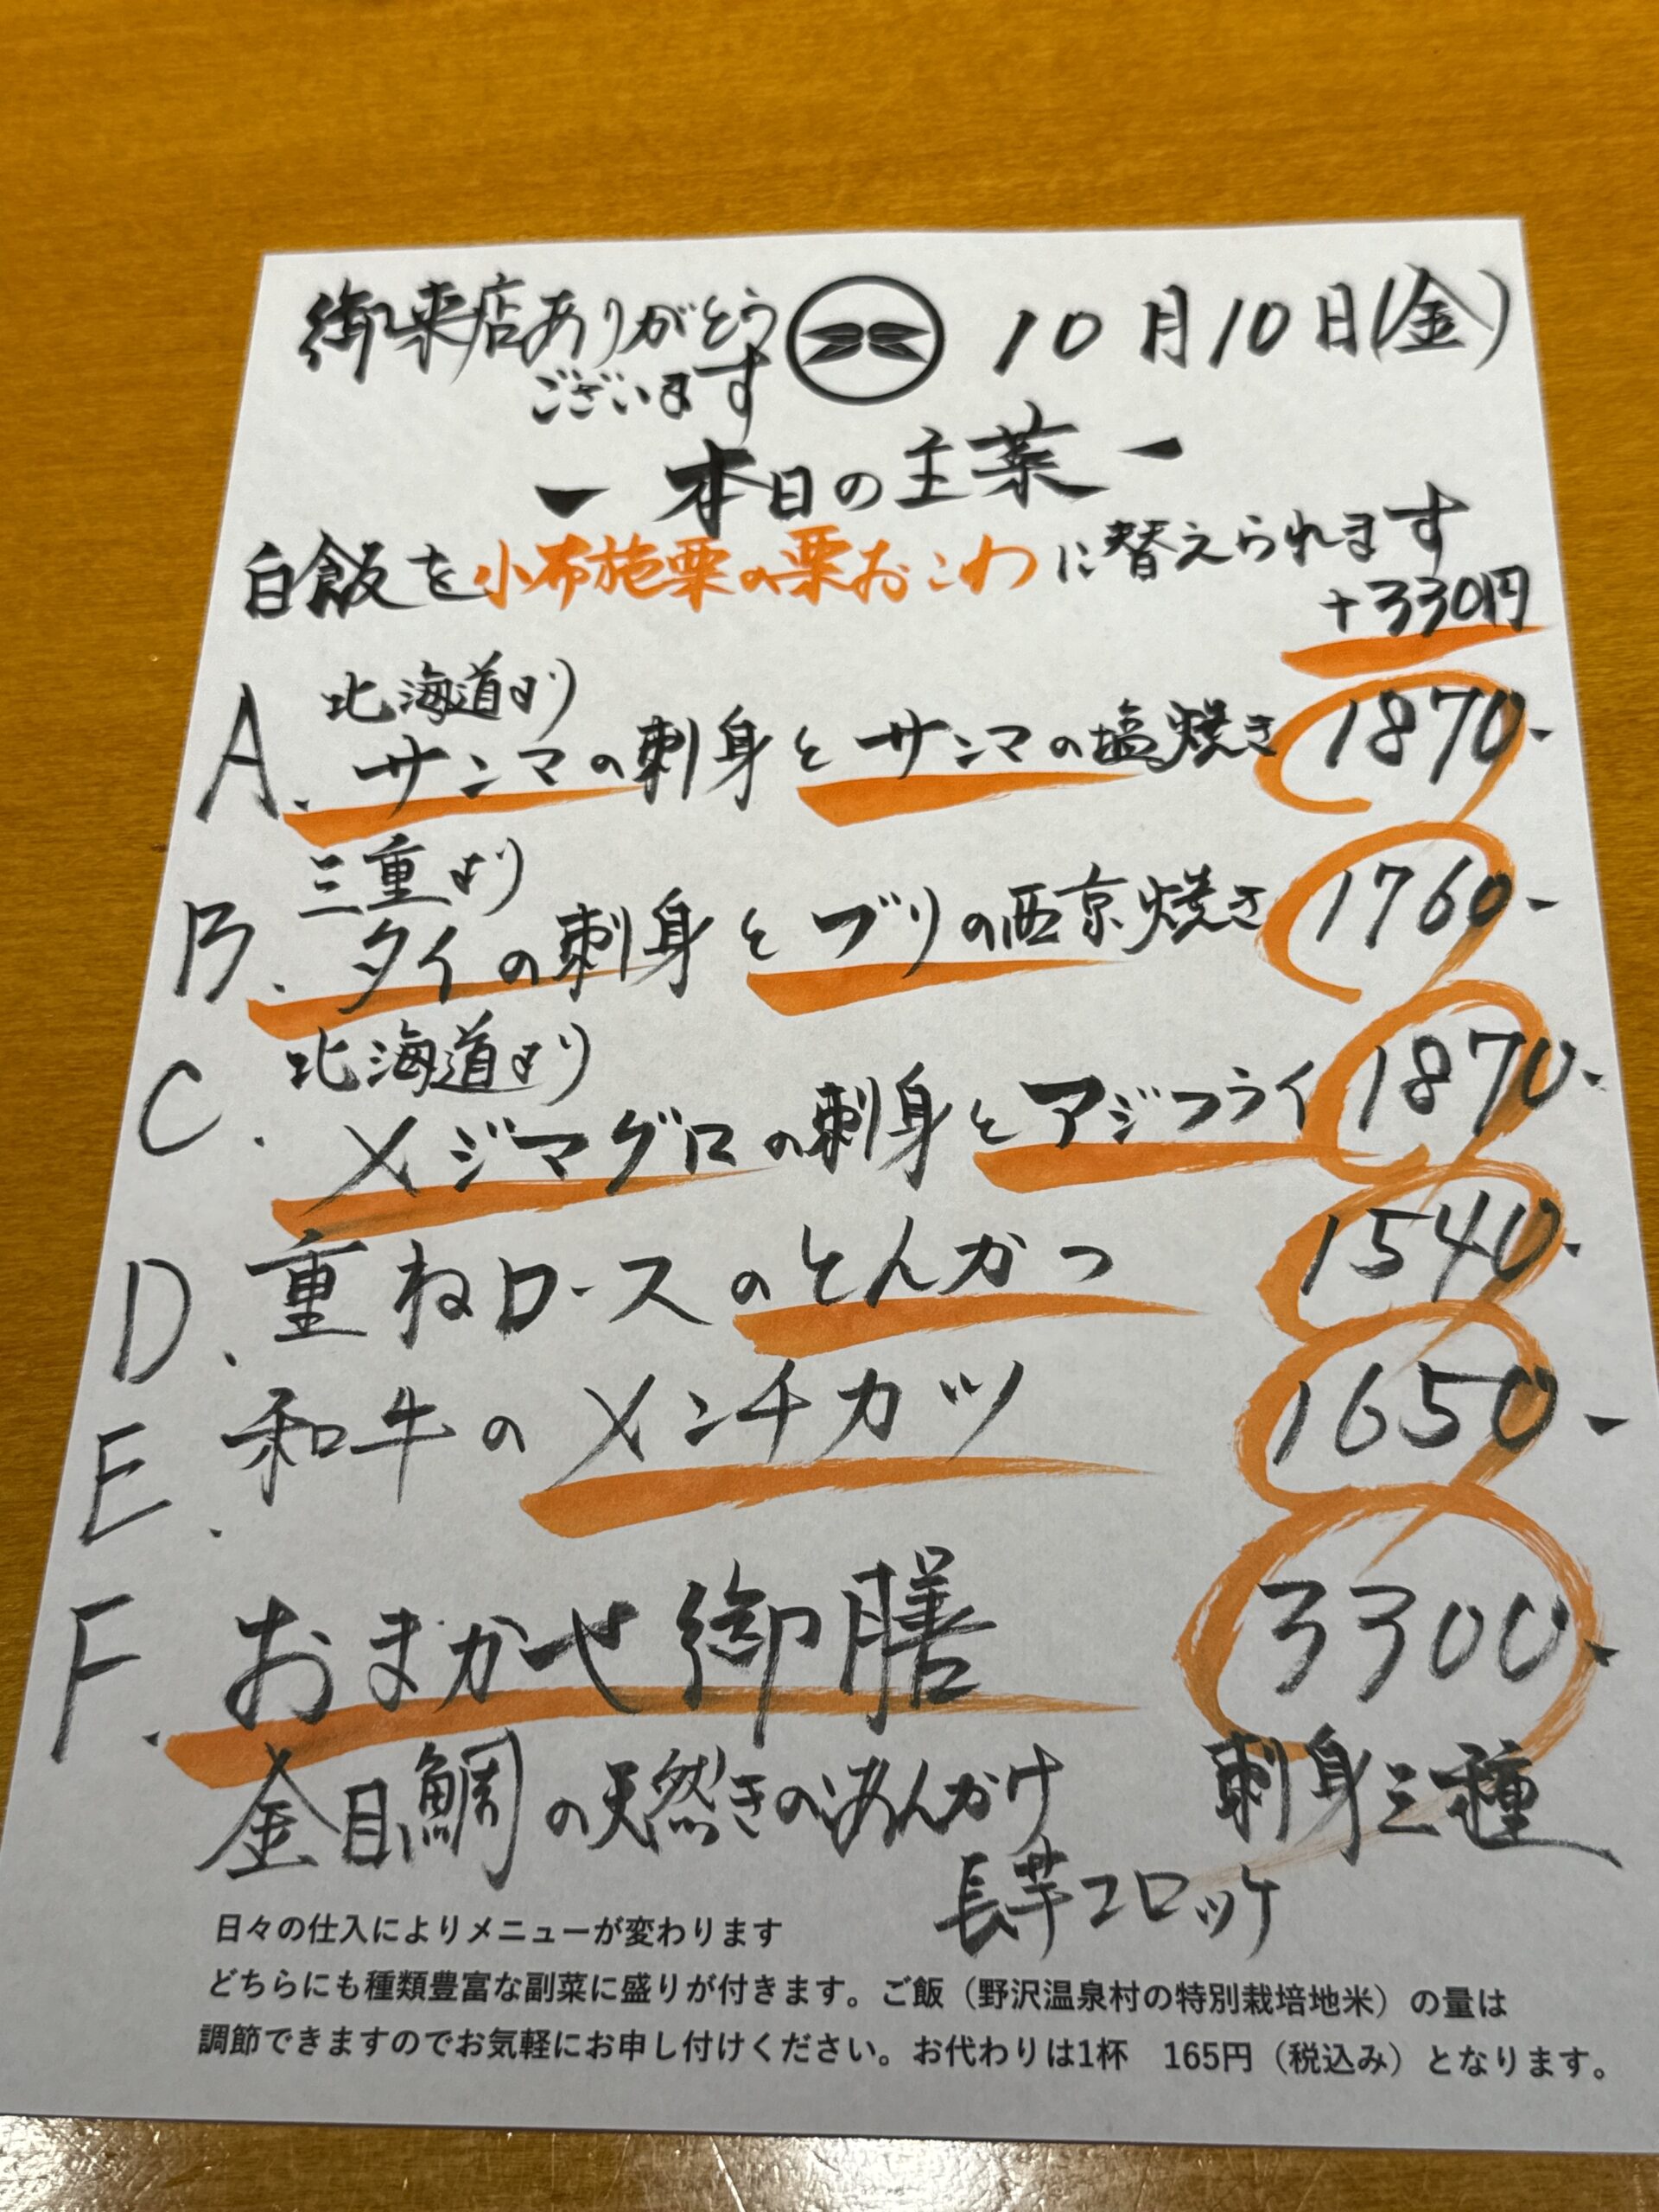 御来店ありがとう
ございます
10月10日(金)
ー本日の主菜ー
白飯を小布施栗の栗おこわに替えられます
+330円
北海道より
A. サンマの刺身とサンマの塩焼き 1870-
三重より
B. タイの刺身とブリの西京焼き 1760-
北海道より
C. メジマグロの刺身とアジフライ 1870-
D. 重ねロースのとんかつ 1540-
E. 和牛のメンチカツ 1650-
F. おまかせ御膳 3300-
金目鯛の天然きのこあんかけ 刺身三種
長芋コロッケ
日々の仕入によりメニューが変わります
どちらにも種類豊富な副菜に盛りが付きます。ご飯（野沢温泉村の特別栽培地米）の量は
調節できますのでお気軽にお申し付けください。お代わりは1杯　165円（税込み）となります。